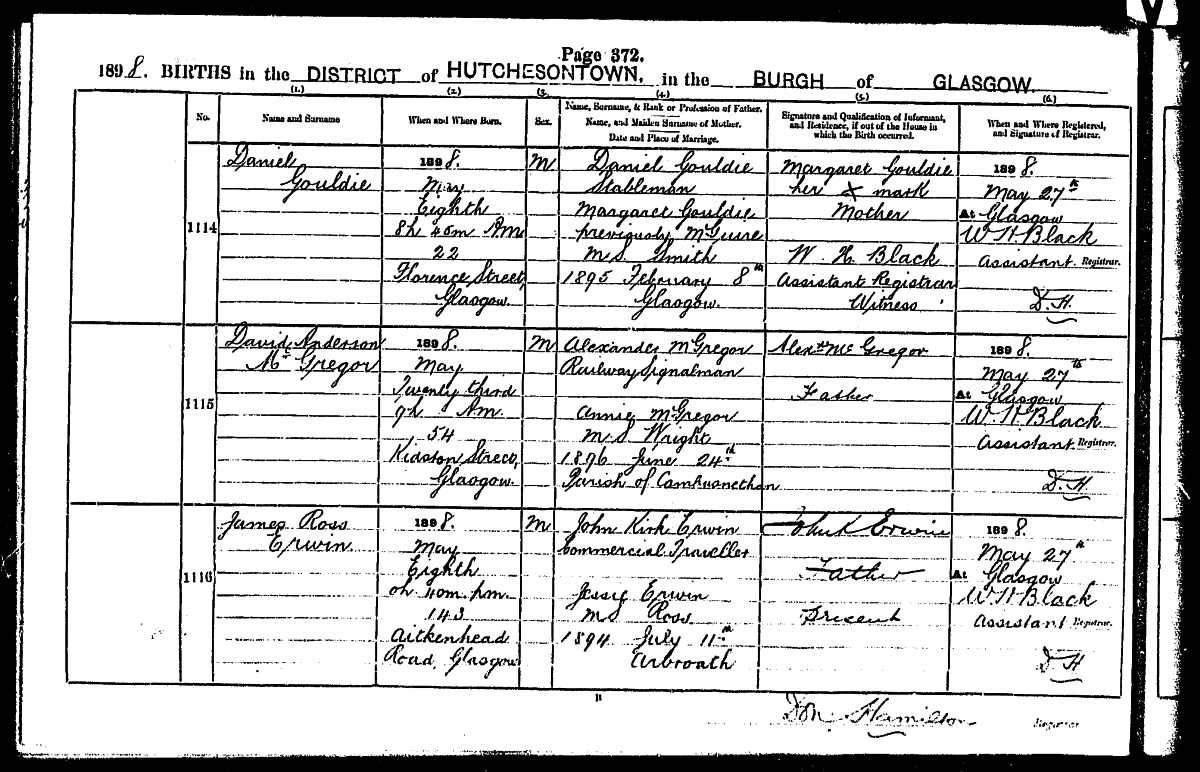 Page 372.
1898. BIRTHS in the DISTRICT of HUTCHESONTOWN, in the BURGH of GLASGOW.
(1.) (2.) (3.) (4.) (5.) (6.)
No.
Name and Surname
When and Where Born.
Sex.
Name, Surname, & Rank or Profession of Father.
Name, and Maiden Surname of Mother.
Date and Place of Marriage.
Signature and Qualification of Informant,
and Residence, if out of the House in
which the Birth occurred.
When and Where Registered,
and Signature of Registrar.
1114
Daniel
Gouldie
1898.
May
Eighth
8h 45m AM
22
Florence Street,
Glasgow.
M
Daniel Gouldie
Stableman
Margaret Gouldie
previously McGuire
M.S. Smith
1895 February 8th
Glasgow.
Margaret Gouldie
her X mark
Mother
W. H. Black
Assistant Registrar
Witness
1898.
May 27th
At Glasgow
W H Black
Assistant Registrar.
D. H.
1115
David Anderson
McGregor
1898.
May
Twenty third
9h AM
54
Kidston Street,
Glasgow.
M
Alexander McGregor
Railway Signalman
Annie McGregor
M.S. Wright
1896 June 24th
Parish of Cambusnethan
Alexr McGregor
Father
1898.
May 27th
At Glasgow
W. H Black
Assistant Registrar.
D. H
1116
James Ross
Erwin
1898.
May
Eighth
0h 40m p.m.
143
Aitkenhead
Road, Glasgow
M
John Kirk Erwin
Commercial Traveller
Jessie Erwin
M.S Ross
1894 July 11th
Arbroath
John K Erwin
Father
Present
1898.
May 27th
At Glasgow
W H Black
Assistant Registrar.
D. H
Hamilton
Registrar